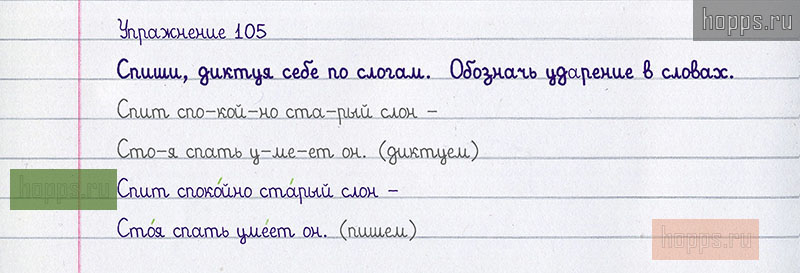 hopps.ru
Упражнение 105
Спиши, диктуя себе по слогам. Обозначь ударение в словах.
Спит спо-кой-но ста-рый слон -
Сто-я спать у-ме-ет он. (диктуем)
hopps.ru
Спит споко́йно ста́рый слон -
Сто́я спать уме́ет он. (пишем)
hopps.ru